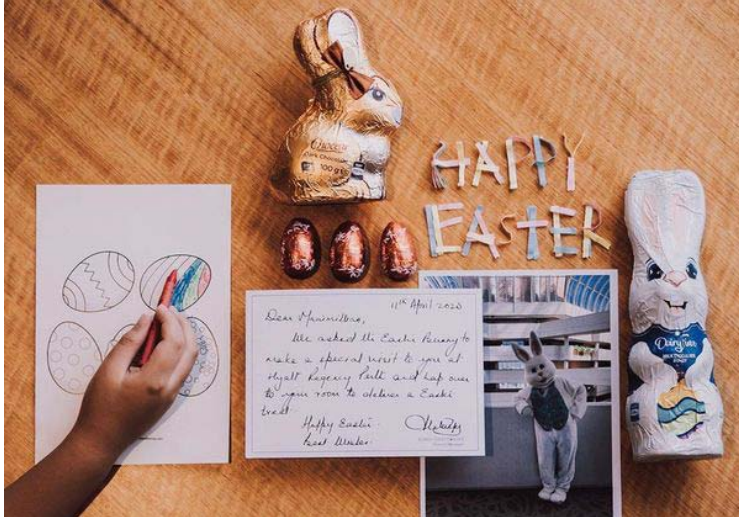 Dark Chocolate
100g
HAPPY
EASTER
Dairy Fine
11th April 2020
Dear Maximilian,
We asked the Easter Bunny to
make a special visit to you at
Hyatt Regency Perth and hop over
to your room to deliver a Easter
treat.
Happy Easter
Best Wishes